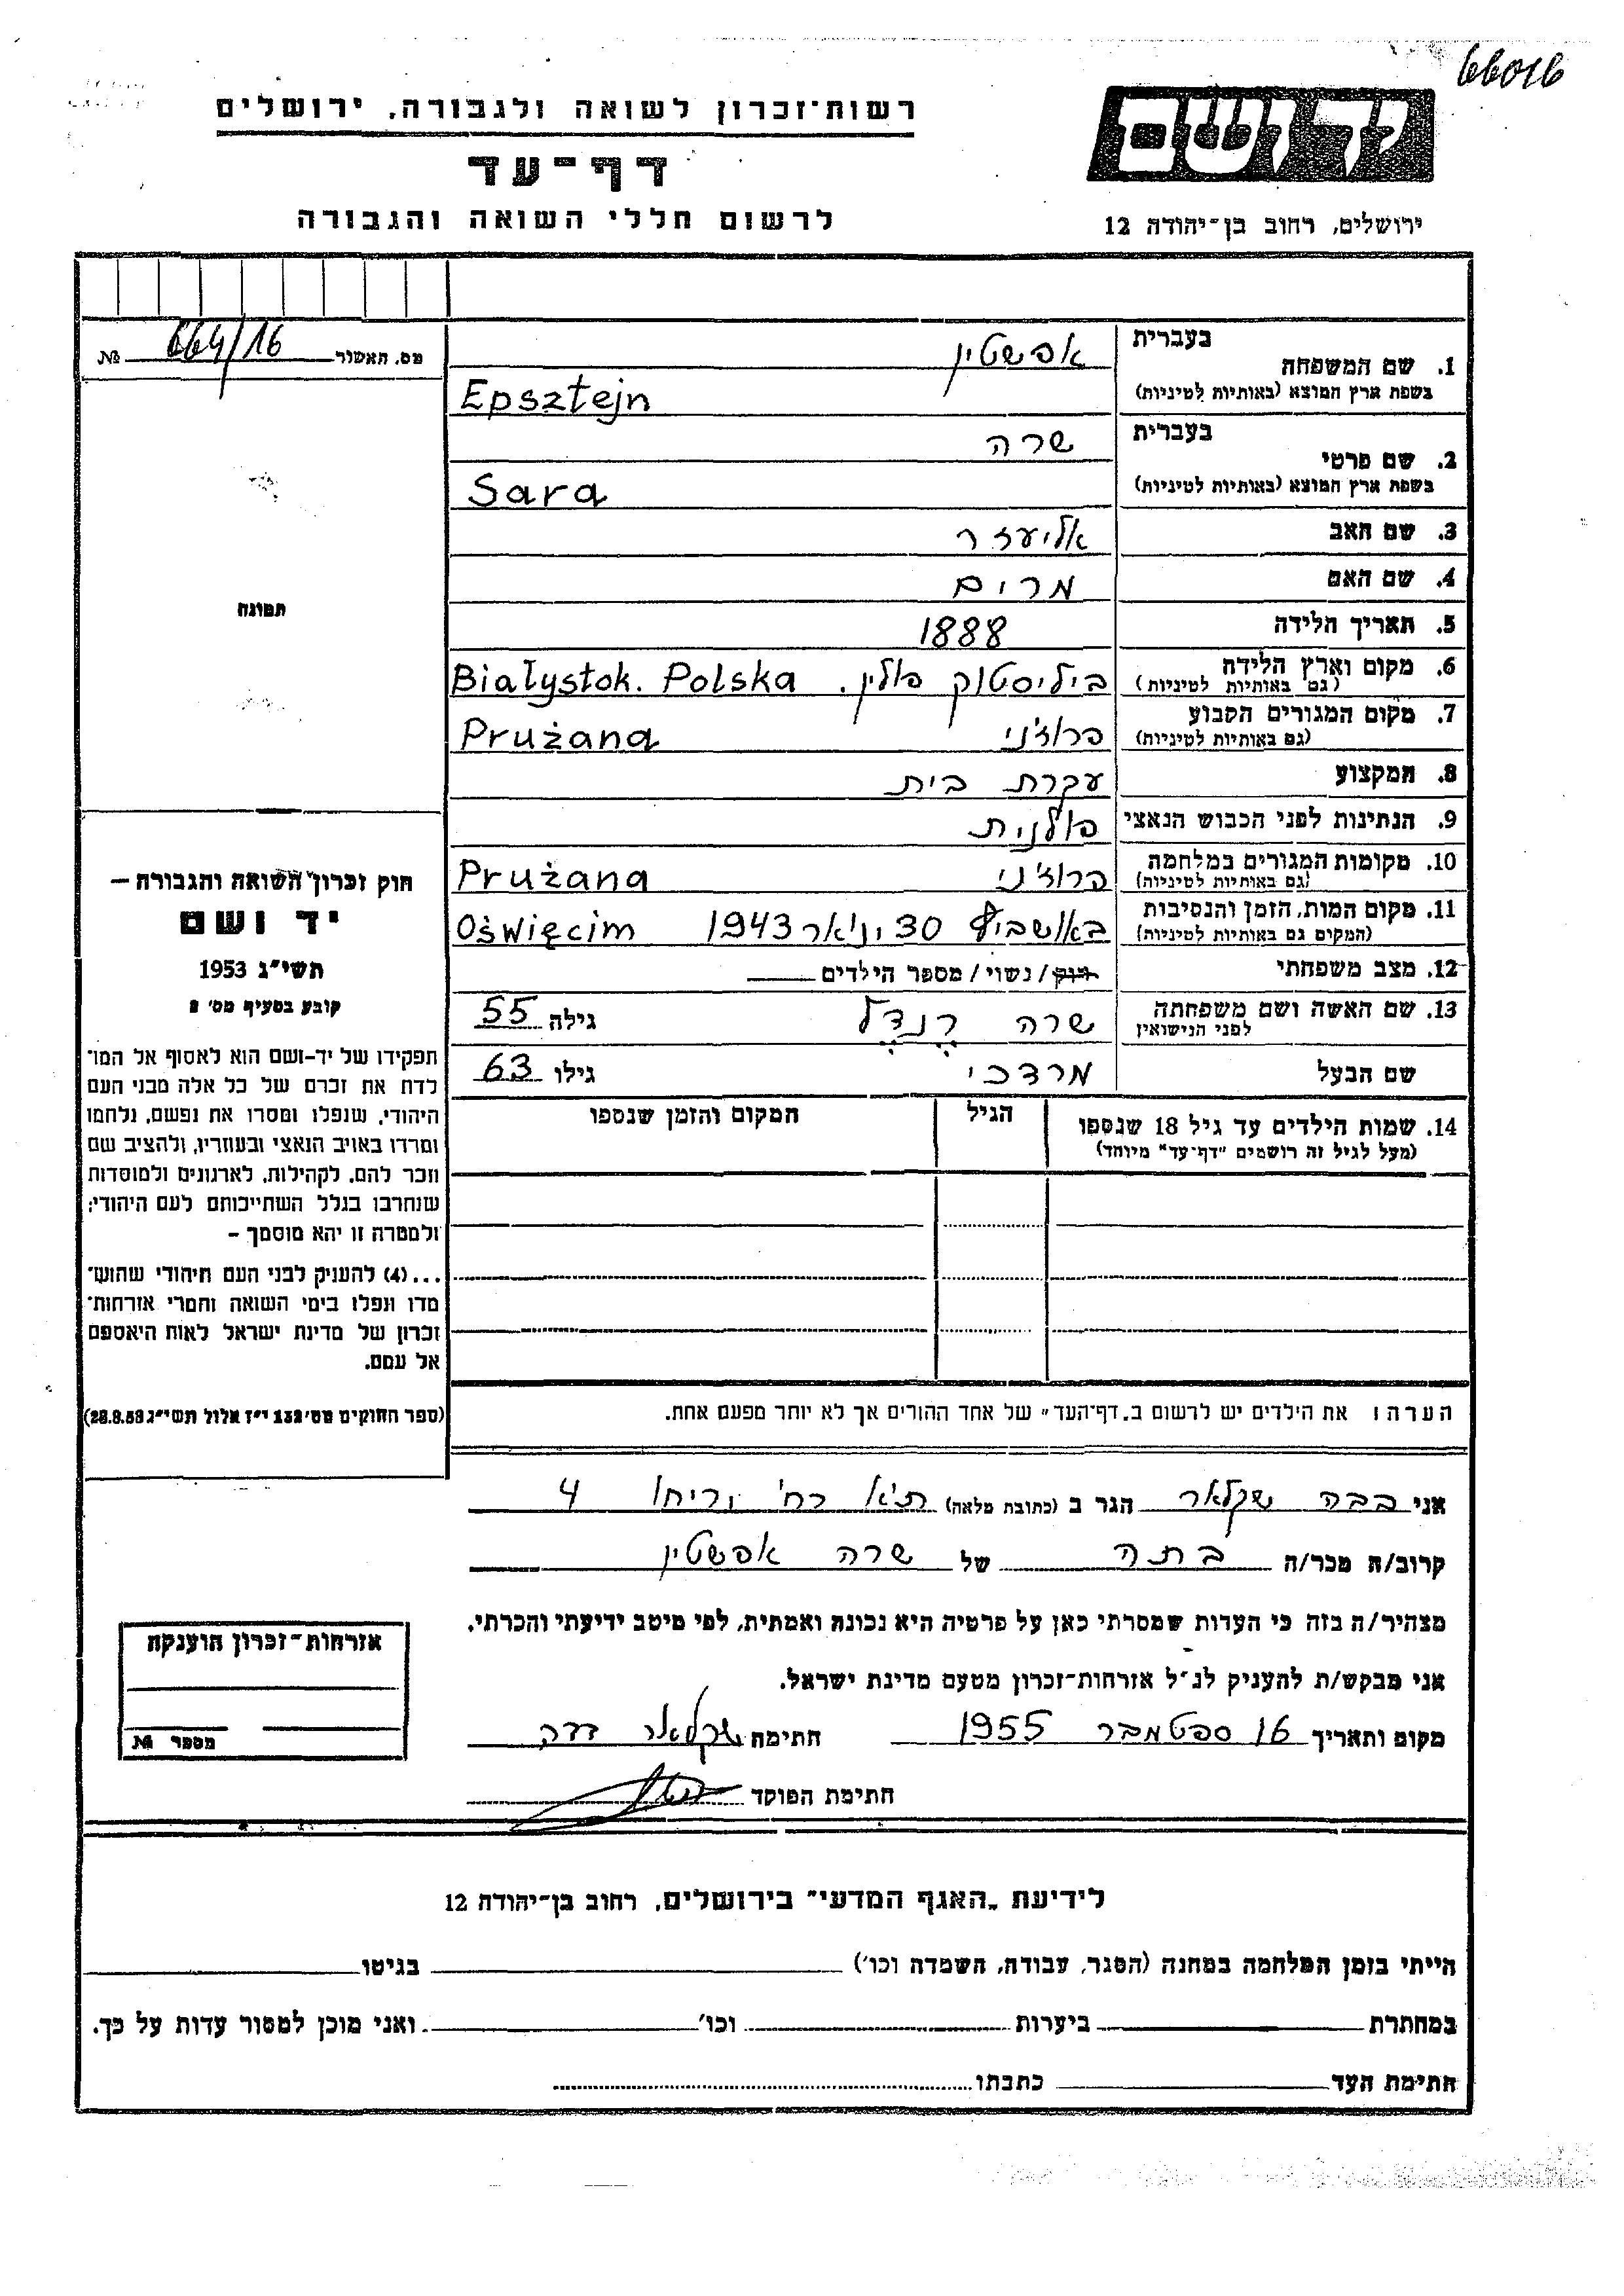 66016
רשות־זכרון לשואה ולגבורה, ירושלים
יד ושם
דף־עד
לרשום חללי השואה והגבורה
ירושלים, רחוב בן־יהודה 12
מס. האשור 664/16 №
1. שם המשפחה בעברית אפשטין
בשפת ארץ המוצא (באותיות לטיניות) Epsztejn
2. שם פרטי בעברית שרה
בשפת ארץ המוצא (באותיות לטיניות) Sara
3. שם האב אליעזר
4. שם האם מרים
5. תאריך הלידה 1888
6. מקום וארץ הלידה (גם באותיות לטיניות) ביליסטוק פולין. Białystok. Polska
7. מקום המגורים הקבוע (גם באותיות לטיניות) פרוז'ני Prużana
8. המקצוע עקרת בית
9. הנתינות לפני הכבוש הנאצי פולנית
10. מקומות המגורים במלחמה (גם באותיות לטיניות) פרוז'ני Prużana
11. מקום המות, הזמן והנסיבות (המקום גם באותיות לטיניות) באושביץ 30 ינואר 1943 Oświęcim
12. מצב משפחתי רווק / נשוי / מספר הילדים
13. שם האשה ושם משפחתה לפני הנישואין שרה רנדל גילה 55
שם הבעל מרדכי גילו 63
14. שמות הילדים עד גיל 18 שנספו הגיל המקום והזמן שנספו
(מעל לגיל זה רושמים "דף־עד" מיוחד)
הערה: את הילדים יש לרשום ב"דף־העד" של אחד ההורים אך לא יותר מפעם אחת.
תמונה
חוק זכרון השואה והגבורה —
יד ושם
תשי"ג 1953
קובע בסעיף מס' 2
תפקידו של יד־ושם הוא לאסוף אל המו־
לדת את זכרם של כל אלה מבני העם
היהודי, שנפלו ומסרו את נפשם, נלחמו
ומרדו באויב הנאצי ובעוזריו, ולהציב שם
וזכר להם, לקהילות, לארגונים ולמוסדות
שנחרבו בגלל השתייכותם לעם היהודי;
ולמטרה זו יהא מוסמך –
...(4) להעניק לבני העם היהודי שהוש־
מדו ונפלו בימי השואה והמרי אזרחות־
זכרון של מדינת ישראל לאות היאספם
אל עמם.
(ספר החוקים מס' 132 י"ז אלול תשי"ג 28.8.53)
אני בבה שקלאר הגר ב (כתובת מלאה) ת"א רח' יריחו 4
קרוב/ה מכר/ה בתה של שרה אפשטין
מצהיר/ה בזה כי העדות שמסרתי כאן על פרטיה היא נכונה ואמתית, לפי מיטב ידיעתי והכרתי.
אני מבקש/ת להעניק לנ"ל אזרחות־זכרון מטעם מדינת ישראל.
מקום ותאריך 16 ספטמבר 1955 חתימה שקלאר
חתימת הפוקד
אזרחות־זכרון הוענקה
מספר №
לידיעת "האגף המדעי" בירושלים, רחוב בן־יהודה 12
הייתי בזמן המלחמה במחנה (הסגר, עבודה, השמדה וכו') בגיטו
במחתרת ביערות וכו' ואני מוכן למסור עדות על כך.
חתימת העד כתבתו